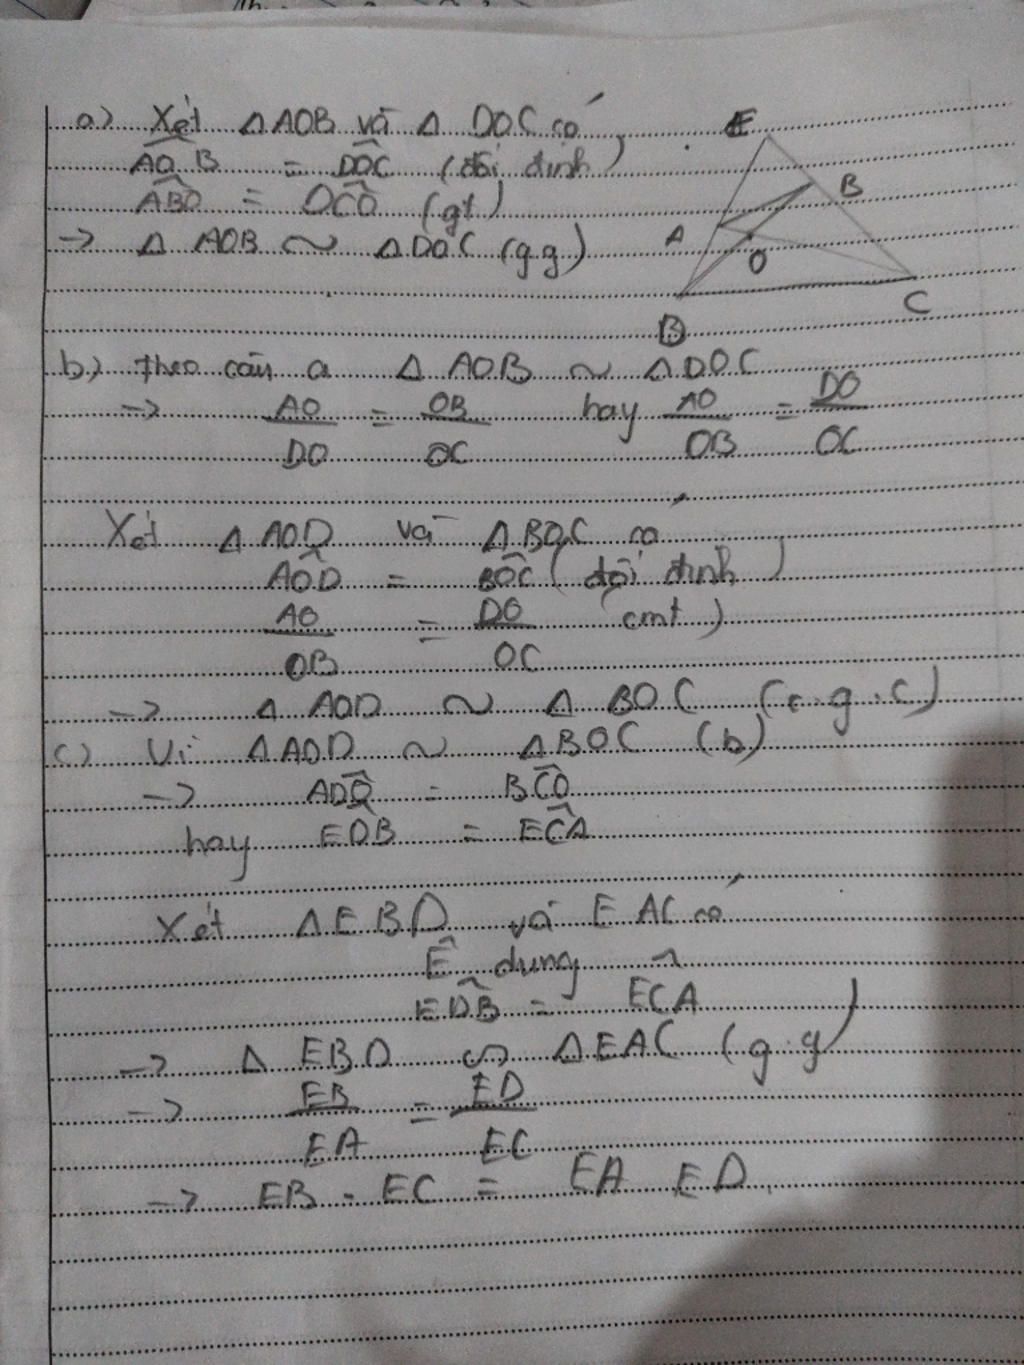 a) Xét △AOB và △ DOC có
AOB = DOC (đối đỉnh)
ABO = OCD (gt)
→ △ AOB ~ △DOC (g.g)
E
B
A
O
C
D
b) theo câu a △ AOB ~ △DOC
→ AO/DO = OB/OC hay AO/OB = DO/OC
Xét △ AOD và △BOC có
AOD = BOC (đối đỉnh)
AO/OB = DO/OC (cmt)
→ △ AOD ~ △ BOC (c.g.c)
c) Vì △AOD ~ △BOC (b)
→ ADO = BCO
hay EDB = ECA
Xét △EBD và EAC có
Ê chung
EDB = ECA
→ △ EBD ∽ △EAC (g.g)
→ EB/EA = ED/EC
→ EB . EC = EA ED